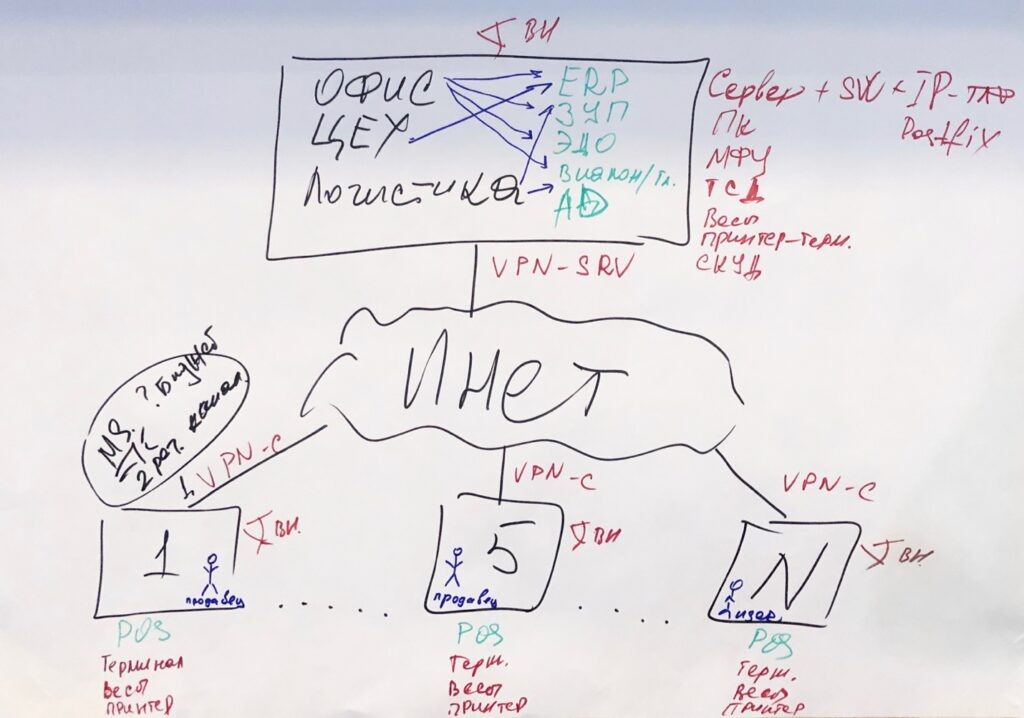 ВН
ОФИС
ЦЕХ
Логистика
ERP
ЗУП
ЭДО
Виапон/Тл.
AD
Сервер + SW + IP-тлф
Postfix
ПК
МФУ
ТСД
Весы
принтер-терм.
СКУД
VPN-SRV
Инет
? Бюджет
MS.
2 рег. канал.
1 VPN-C
VPN-C
VPN-C
1
ВН.
продавец
5
ВН
продавец
N
ВН.
Лидер.
.....
...
...
POS
Терминал
Весы
принтер
POS
Терм.
Весы
принтер
POS
Терм.
Весы
принтер